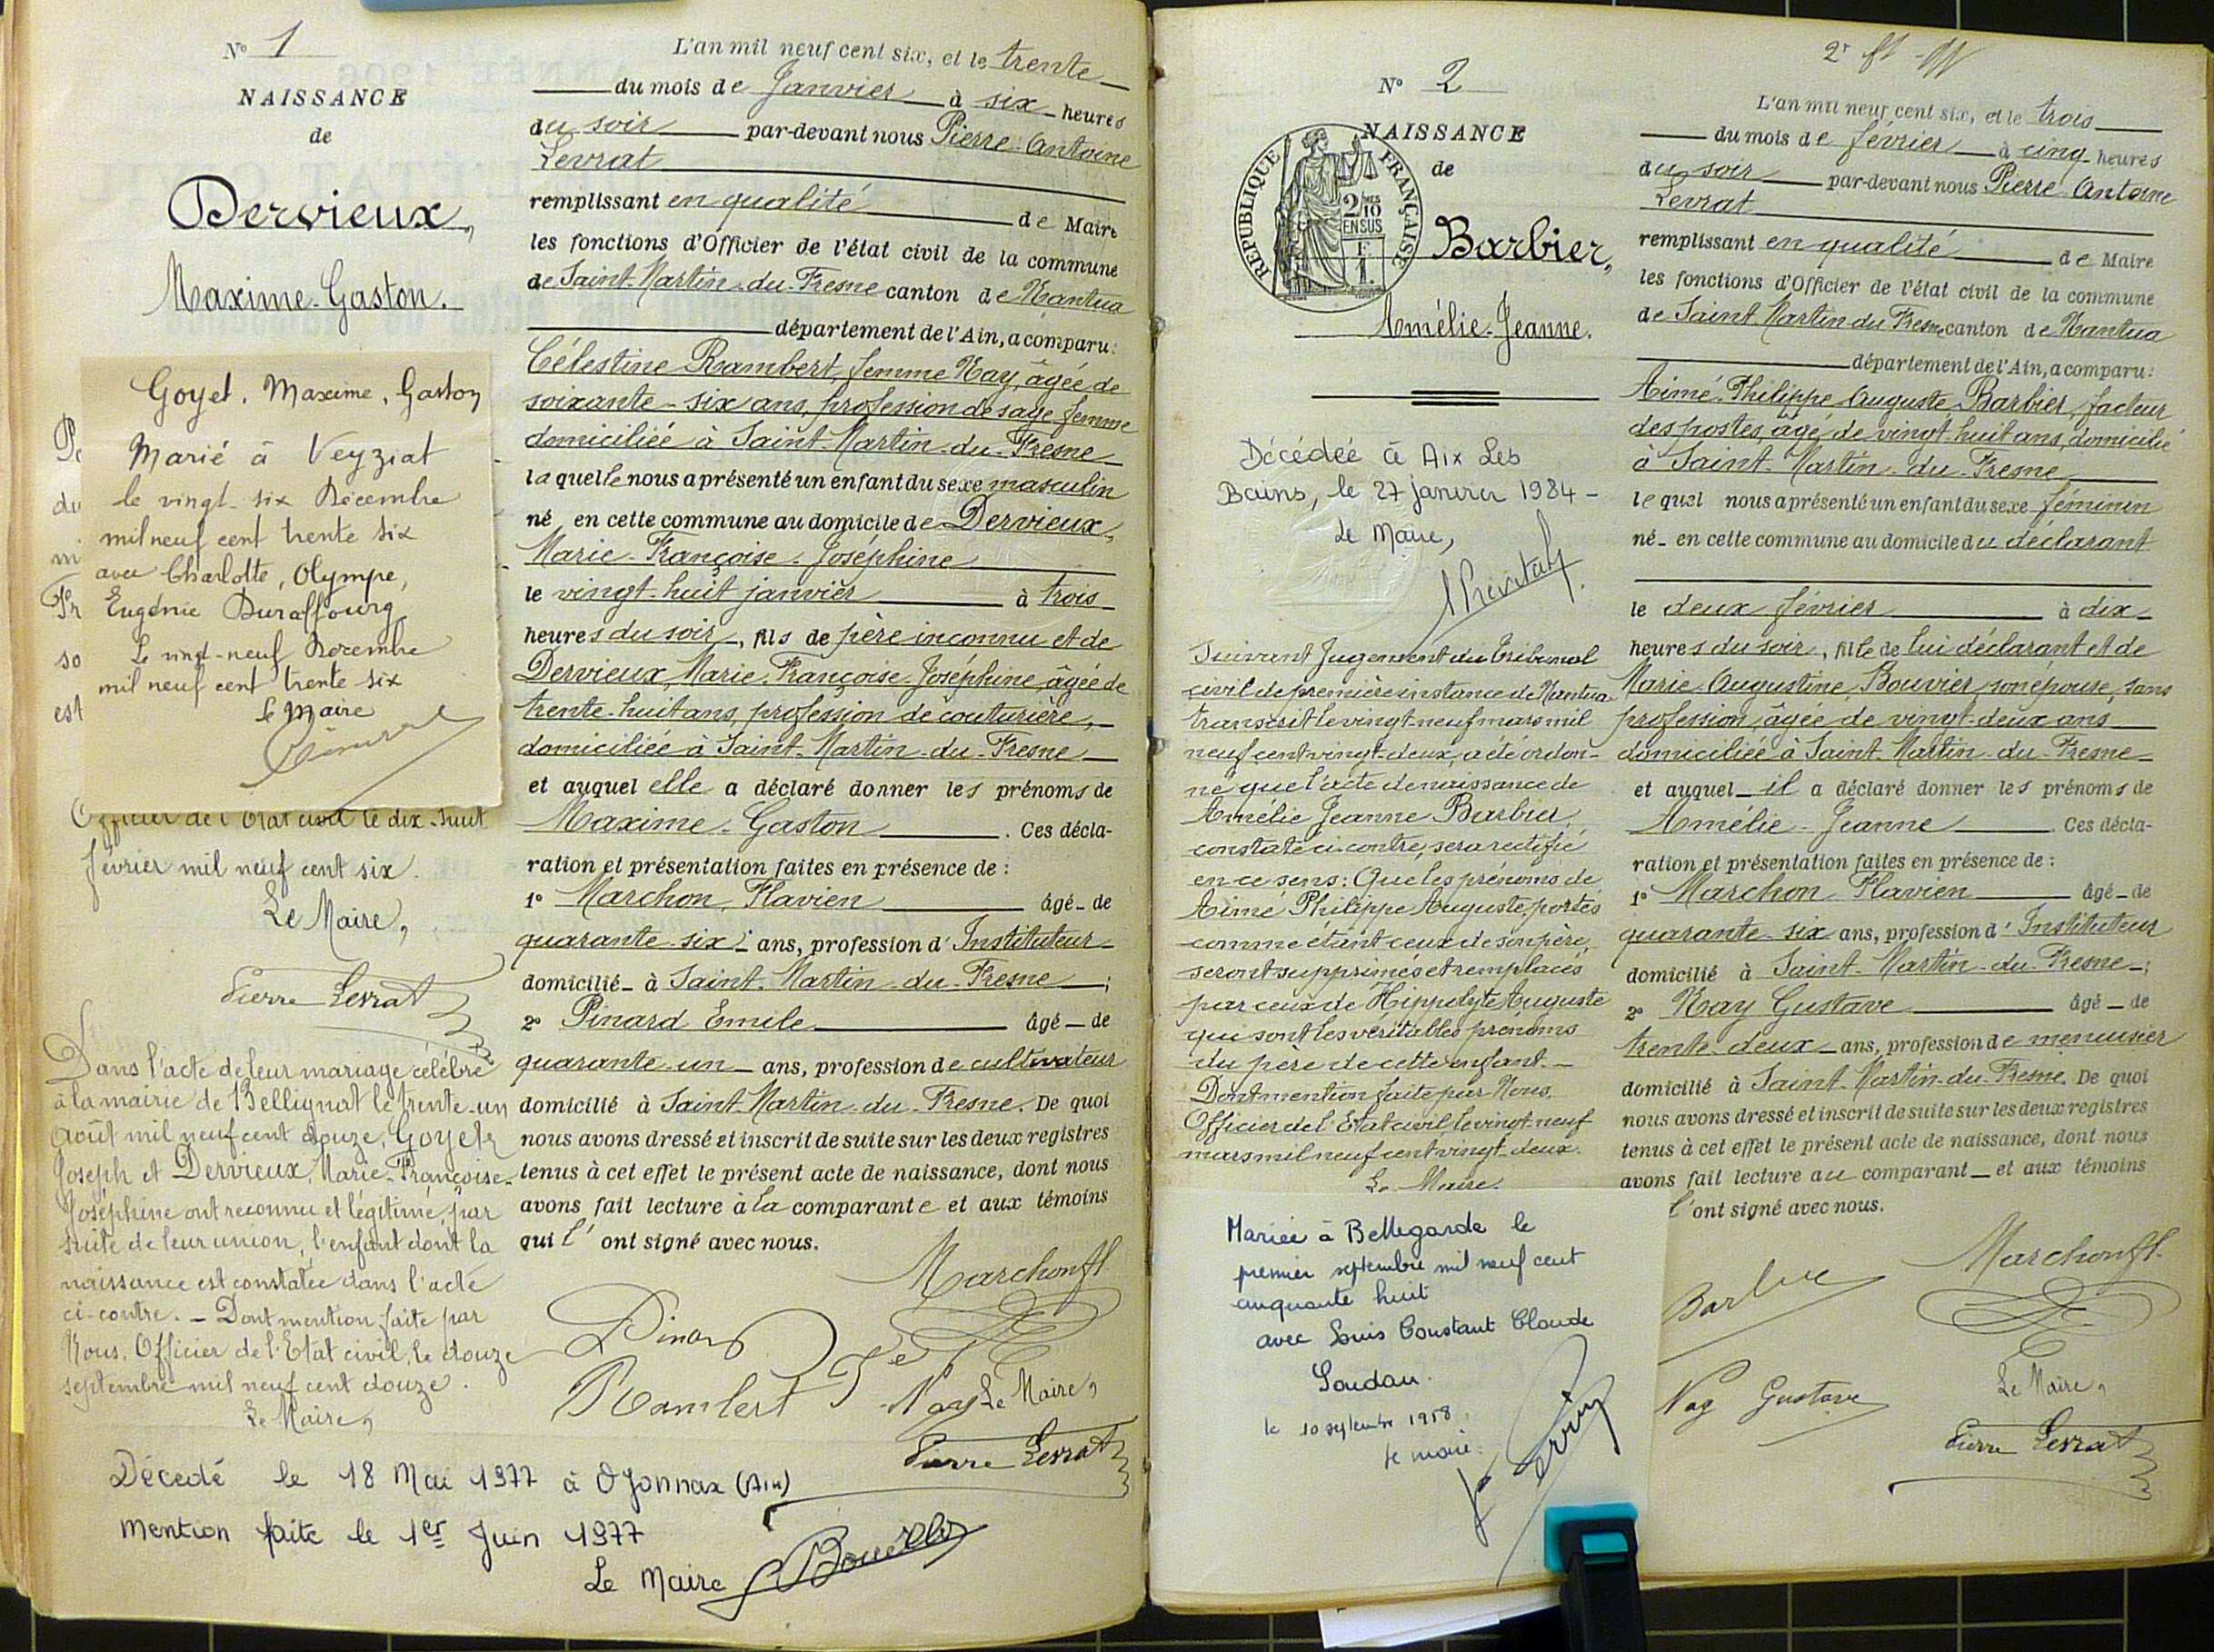 N° 1
NAISSANCE
de
Dervieux,
Maxime-Gaston.
Goyet, Maxime, Gaston
Marié à Veyziat
le vingt-six Décembre
mil neuf cent trente six
avec Charlotte, Olympe,
Eugénie Duraffourg
Le vingt-neuf Décembre
mil neuf cent trente six
Le Maire
du
m
Fr
so
est
Officier de l'Etat civil le dix-huit
février mil neuf cent six.
Le Maire,
Pierre Levrat
Dans l'acte de leur mariage célébré
à la mairie de Bellignat le trente-un
août mil neuf cent douze, Goyet,
Joseph et Dervieux, Marie-Françoise-
Joséphine ont reconnu et légitimé, par
suite de leur union, l'enfant dont la
naissance est constatée dans l'acte
ci-contre. - Dont mention faite par
Nous, Officier de l'Etat civil, le douze
septembre mil neuf cent douze.
Le Maire,
Décedé le 18 Mai 1977 à Oyonnax (Ain)
Mention faite le 1er Juin 1977
Le Maire
L'an mil neuf cent six, et le trente
du mois de Janvier à six heures
du soir par-devant nous Pierre-Antoine
Levrat
remplissant en qualité de Maire
les fonctions d'Officier de l'état civil de la commune
de Saint-Martin-du-Fresne canton de Nantua
département de l'Ain, a comparu:
Célestine Rambert, femme Nay, âgée de
soixante-six ans, profession de sage femme
domiciliée à Saint-Martin-du-Fresne
laquelle nous a présenté un enfant du sexe masculin
né en cette commune au domicile de Dervieux,
Marie-Françoise-Joséphine
le vingt-huit janvier à trois
heures du soir, fils de père inconnu et de
Dervieux, Marie-Françoise-Joséphine, âgée de
trente-huit ans, profession de couturière,
domiciliée à Saint-Martin-du-Fresne
et auquel elle a déclaré donner les prénoms de
Maxime-Gaston. Ces décla-
ration et présentation faites en présence de :
1° Marchon, Flavien âgé de
quarante-six ans, profession d'Instituteur
domicilié à Saint-Martin-du-Fresne ;
2° Pinard Emile âgé de
quarante-un ans, profession de cultivateur
domicilié à Saint-Martin-du-Fresne. De quoi
nous avons dressé et inscrit de suite sur les deux registres
tenus à cet effet le présent acte de naissance, dont nous
avons fait lecture à la comparante et aux témoins
qui l'ont signé avec nous.
Marchon fl.
Pinard
Rambert Fe Nay Le Maire,
Pierre Levrat
2r ft
N° 2
NAISSANCE
de
REPUBLIQUE FRANÇAISE
2/10 MES
EN SUS
F
1.
Barbier,
Amélie-Jeanne.
Décédée à Aix Les
Bains, le 27 janvier 1984 -
Le Maire,
Suivant Jugement du Tribunal
civil de première instance de Nantua
transcrit le vingt-neuf mars mil
neuf cent vingt-deux, a été ordon-
né que l'acte de naissance de
Amélie Jeanne Barbier,
constaté ci-contre, sera rectifié
en ce sens: Que les prénoms de
Aimé Philippe Auguste, portés
comme étant ceux de son père,
seront supprimés et remplacés
par ceux de Hippolyte Auguste
qui sont les véritables prénoms
du père de cette enfant. -
Dont mention faite par Nous,
Officier de l'Etat civil le vingt-neuf
mars mil neuf cent vingt-deux.
Le Maire.
Mariée à Bellegarde le
premier septembre mil neuf cent
cinquante huit
avec Louis Constant Claude
Soudan.
le 10 septembre 1958.
le maire:
L'an mil neuf cent six, et le trois
du mois de février à cinq heures
du soir par-devant nous Pierre-Antoine
Levrat
remplissant en qualité de Maire
les fonctions d'Officier de l'état civil de la commune
de Saint-Martin-du-Fresne canton de Nantua
département de l'Ain, a comparu:
Aimé-Philippe Auguste Barbier, facteur
des postes, âgé de vingt-huit ans, domicilié
à Saint-Martin-du-Fresne
lequel nous a présenté un enfant du sexe féminin
né en cette commune au domicile du déclarant
le deux février à dix
heures du soir, fille de lui déclarant et de
Marie-Augustine Bouvier, son épouse, sans
profession, âgée de vingt-deux ans
domiciliée à Saint-Martin-du-Fresne
et auquel il a déclaré donner les prénoms de
Amélie-Jeanne. Ces décla-
ration et présentation faites en présence de :
1° Marchon Flavien âgé de
quarante-six ans, profession d'Instituteur
domicilié à Saint-Martin-du-Fresne ;
2° Nay Gustave âgé de
trente-deux ans, profession de menuisier
domicilié à Saint-Martin-du-Fresne. De quoi
nous avons dressé et inscrit de suite sur les deux registres
tenus à cet effet le présent acte de naissance, dont nous
avons fait lecture au comparant et aux témoins
l'ont signé avec nous.
Marchon fl.
Barbier
Le Maire,
Nay Gustave
Pierre Levrat